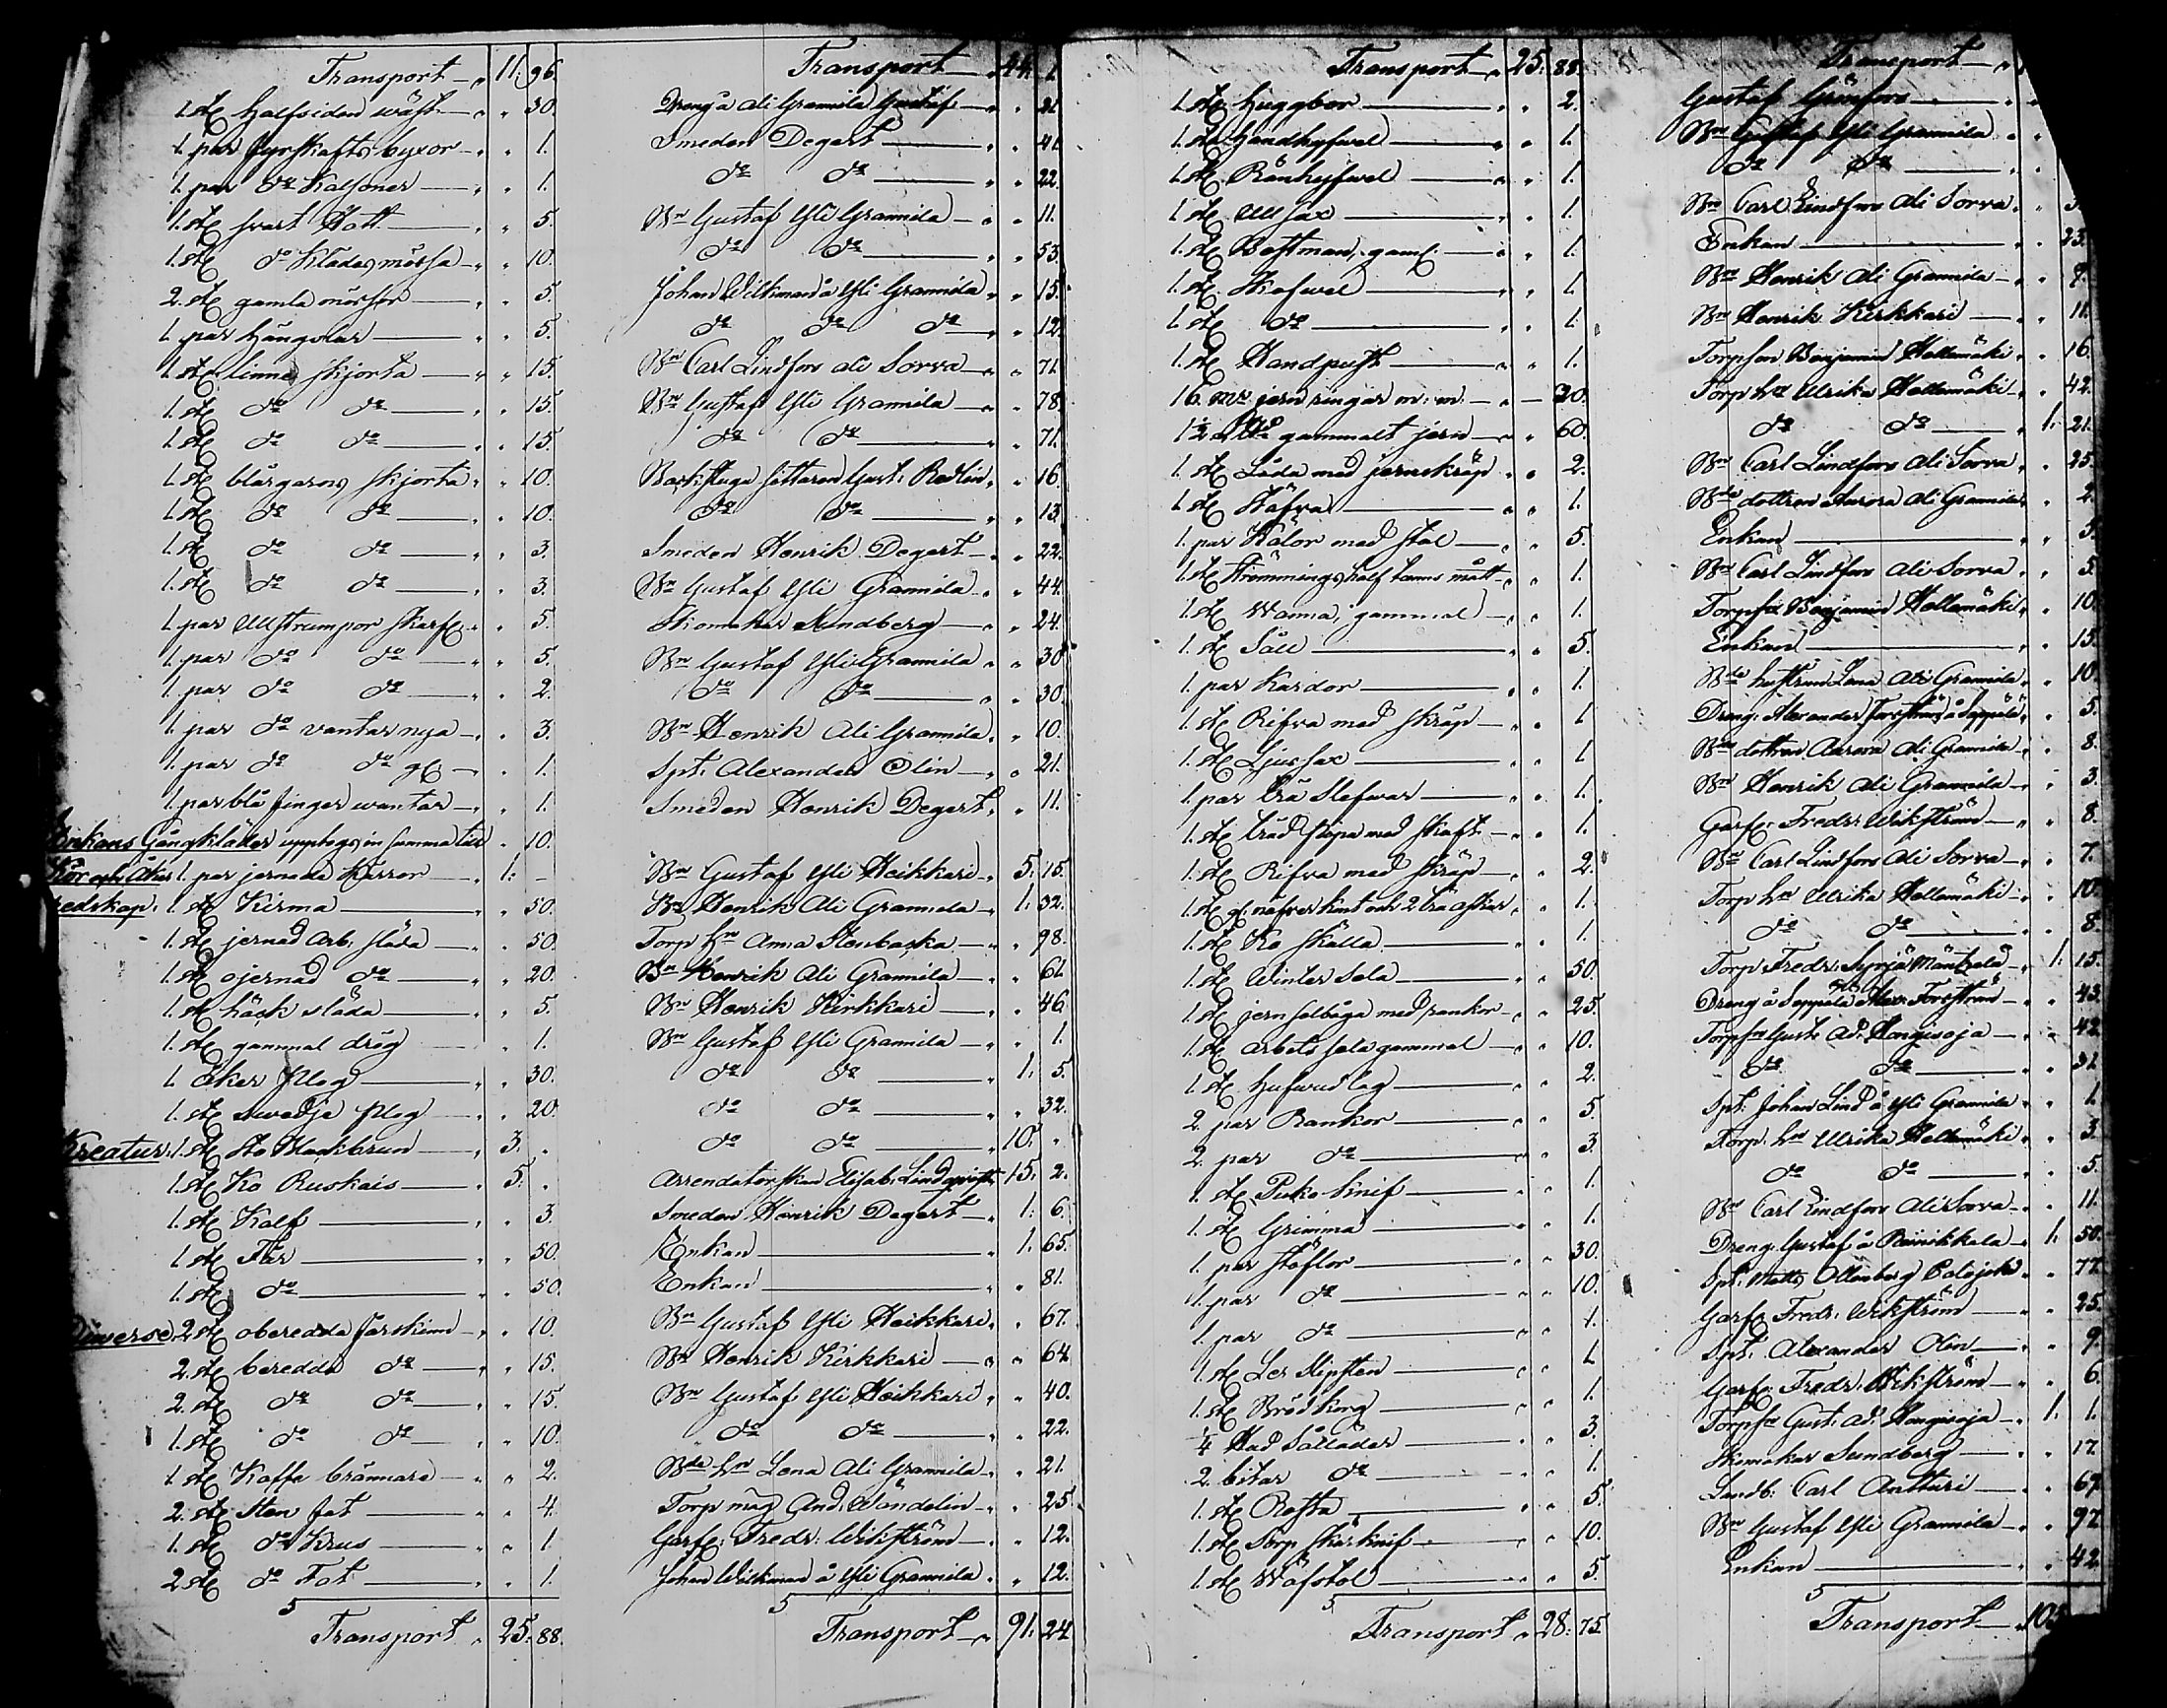 Transport " 11. 96.
1. st halfsiden wäst " " 30.
1. par fyrskafts byxor " " 1.
1. par do Kalsoner " " 1.
1. st svart Hatt " " 5.
1. st do Klädes mössa " " 10.
2. st gamla mössor " " 5.
1. par Hängslar " " 5.
1. st linne skjorta " " 15.
1. st do do " " 15.
1. st do do " " 15.
1. st blårgarns skjorta " " 10.
1. st do do " " 10.
1. st do do " " 3.
1. st do do " " 3.
1. par Ullstrumpor " " 5.
1. par do do " " 5.
1. par do do " " 2.
1. par do vantar nya " " 3.
1. par do do gl " " 1.
1. par blå finger wantar " " 1.
Enkans Gångkläder upptogs in summa till " 10.
Kör och Åker 1. par jernade Kärror " 1: -
redskap. 1. st Kirma " " 50.
1. st jernad Arb. släda " " 50.
1. st ojernad do " " 20.
1. st häck släda " " 5.
1. st gammal drög " " 1.
1. Åker Plog " " 30.
1. st swedje Plog " " 20.
Kreatur. 1. st Sto Blackbrun " 3. "
1. st Ko Ruskais " 5. "
1. st Kalf " " 3.
1 st Får " " 50.
1. st do " " 50.
Diverse. 2 st oberedda fårskinn " " 10.
2. st beredda do " " 15.
2. st do do " " 15.
1. st do do " " 10.
1. st Kaffe brännare " " 2.
2. st Sten fat " " 4.
1. st do Krus " " 1.
2 st do Fat " " 1.
Transport " 25. 88.
Transport " 44. 1.
Dreng å Ali Grannila Gustaf " " 21.
Smeden Degert " " 41.
do do " " 22.
Bn Gustaf Yli Grannila " " 11.
do do " " 53.
Johan Wilkman å Yli Grannila " " 15.
do do do " " 12.
Bn Carl Lindfors Ali Sorva " " 71.
Bn Gustaf Yli Grannila " " 78.
do do " " 71.
Backstuga sittaren Gust. Redlin " " 16.
do do " " 13.
Smeden Henrik Degert " " 22.
Bn Gustaf Yli Grannila " " 44.
Skomakar Sundberg " " 24.
Bn Gustaf Yli Grannila " " 30
do do " " 30.
Bn Henrik Ali Grannila " " 10.
Spt. Alexander Olin " " 21.
Smeden Henrik Degert " " 11.
Bn Gustaf Yli Heikkari " 5. 15.
Bn Henrik Ali Grannila " 1. 32.
Torp hn Anna Stenbacka " " 98.
Bn Henrik Ali Grannila " " 61.
Bn Henrik Kirkkari " " 46.
Bn Gustaf Yli Grannila " " 1.
do do " 1. 5.
do do " " 32.
do do " 10. "
Arrendatorskan Elisab. Lindqvist 15. 2.
Smeden Henrik Degert " 1: 6.
Enkan " 1. 65.
Enkan " " 81.
Bn Gustaf Yli Heikkari " " 67.
Bn Henrik Kirkkari " " 64.
Bn Gustaf Yli Heikkari " " 40.
do do " " 22.
Bde hn Lena Ali Grannila " " 21.
Torp måg And. Wändelin " " 25.
Garf. Fredr. Wikström " " 12.
Johan Wilkman å Yli Grannila " " 12.
Transport " 91. 24
Transport " 25. 88.
1. st Huggbor " " 2.
1. st Handhyfwel " " 1.
1. st Rånhyfwel " " 1.
1. st Ull sax " " 1.
1. st Bessman, gaml. " " 1.
1. st Skofwel " " 1.
1. st do " " 1.
1. st Handpust " " 1.
16. mr jern ringar m: m. " " 20.
1½ gammalt jern " " 60.
1. st Låda med jernskräp " " 2.
1. st Stäfva " " 1.
1. par Kälor med stol " " 5.
1. st Strömmings half tunns mått " " 1.
1. st Wanna, gammal " " 1.
1. st Såll " " 5.
1. par Kardor " " 1.
1. st Rifva med skräp " " 1
1. st Ljussax " " 1
1. par trä Slefwar " " 1.
1. st bräd stopa med skaft " " 1.
1. st Rifva med skräp " " 2.
1. st gl. näfver kont och 2 trä askar " " 1.
1. st Ko skälla " " 1.
1. st Winter Sela " " 50.
1. st jern selbåga med rankor " " 25.
1. st arbets sela gammal " " 10.
1. st hufwudlag " " 2.
2. par Rankor " " 5.
2. par do " " 3.
1. st Puko knif " " 1.
1. st Grimma " " 1.
1. par stöflor " " 30.
1. par do " " 10.
1. par do " " 1.
1. st Ler Slipsten " " 1.
1. st Brödkorg " " 1.
¼ Hud Sålläder " " 3.
2. bitar do " " 1.
1. st Refta " " 5.
1. st Törp skär knif " " 10.
1. st Wäfstol " " 5.
Transport " 28. 75.
Transport "
Gustaf Grönfors " "
Bn Gustaf Yli Grannila " "
do do " "
Bn Carl Lindfors Ali Sorva " " 3.
Enkan " " 23.
Bn Henrik Ali Grannila " " 9.
Bn Henrik Kirkkari " " 11.
Torpson Benjamin Hallamäki " " 16.
Torp hn Ulrika Hallamäki " " 42.
do do " 1. 21.
Bn Carl Lindfors Ali Sorva " " 25.
Bde dottren Aurora Ali Grannila " " 2.
Enkan " " 3.
Bn Carl Lindfors Ali Sorva " " 5.
Torpsn Benjamin Hallamäki " " 10.
Enkan " " 15.
Bde hustrun Lena Ali Grannila " " 10.
Dreng. Alexander Forsström å Seppälä " " 5.
Bde dottren Aurora Ali Grannila " " 8.
Bn Henrik Ali Grannila " " 3.
Garf. Fredr. Wikström " " 8.
Bn Carl Lindfors Ali Sorva " " 7.
Torp hn Ulrika Hallamäki " " 10.
do do " " 8.
Torp. Fredr. Syrjä Mäntzelä " 1. 15.
Dreng å Seppälä Alex. Forsström " " 43.
Torpsn Gust. Ad. Hongisoja " " 42.
do do " " 31.
Spt. Johan Lind å Yli Grannila " " 1.
Torp. hn Ulrika Hallamäki " " 3.
do do " " 5.
Bn Carl Lindfors Ali Sorva " " 11.
Dreng. Gustaf å Reinikkala " 1. 50.
Spt. Matts Ollenberg " " 77.
Garf. Fredr. Wikström " " 25.
Spt. Alexander Olin " " 9.
Garf. Fredr. Wikström " " 6.
Torpsn Gust. Ad. Hongisoja " 1. 1.
Skomakar Sundberg " " 17.
Landb. Carl Anttari " " 67.
Bn Gustaf Yli Grannila " " 97.
Enkan " " 42.
Transport " 103